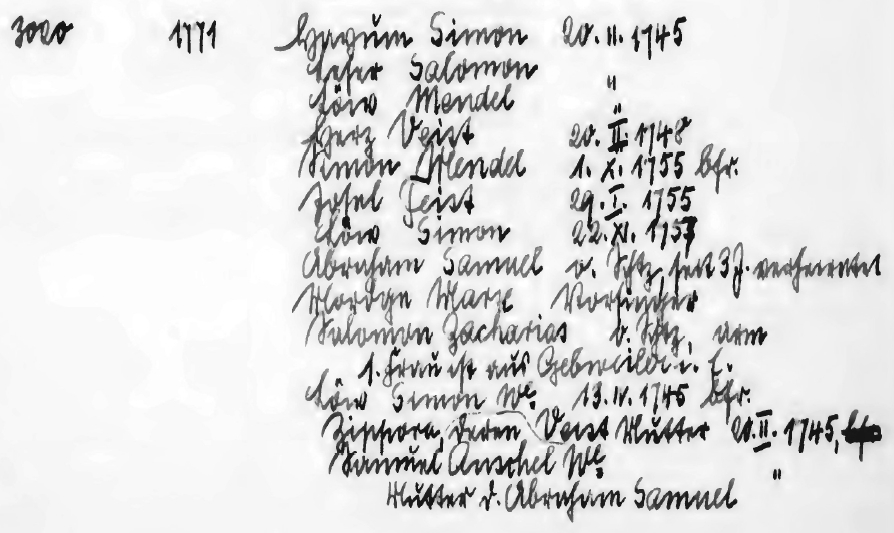 3020 1771 Hayum Simon 20. II. 1745
Leser Salomon "
Löw Mendel "
Herz Veist 20. II. 1748
Simon Mendel 1. X. 1755 bfr.
Josel Feist 29. I. 1755
Löw Simon 22. XI. 1757
Abraham Samuel o. Schtz, seit 3 J. verheiratet
Mordge Marx Vorsinger
Salomon Zacharias o. Schtz, arm
s. Frau ist aus Gebweiler i. E.
Löw Simon We. 13. IV. 1745 bfr.
Zipporra, deren Veist Mutter 20. II. 1745,
Samuel Anschel We. "
Mutter d. Abraham Samuel